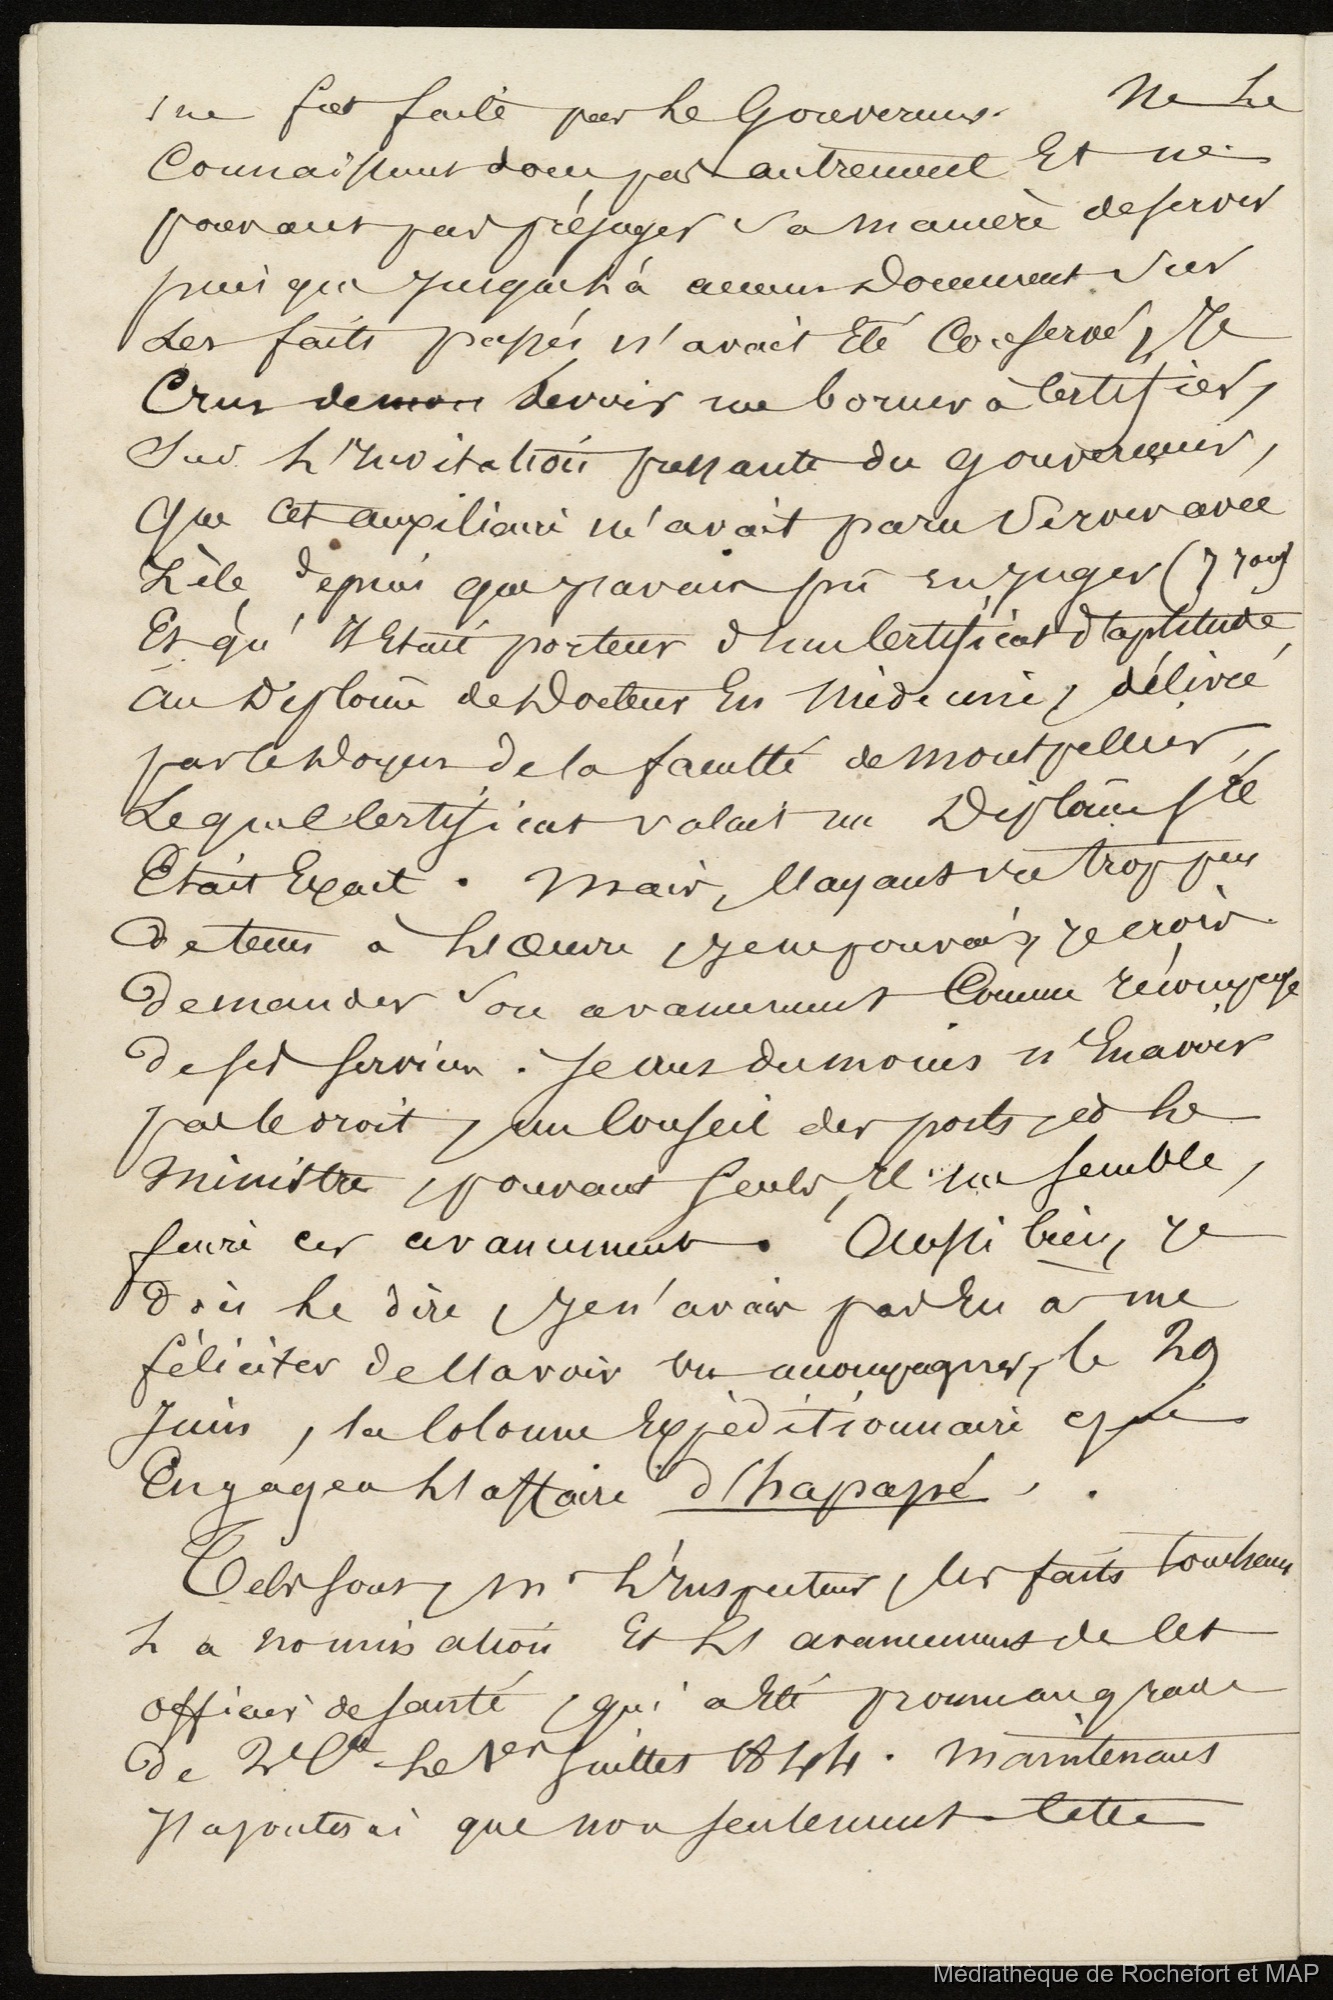 me fut faite par le Gouverneur. Ne le
Connaissant donc pas autrement Et ne
pouvant pas préjuger Sa maniere de servir
puisque jusques là aucun Document Sur
Les faits passés n'avait Eté Conservé, Je
Crus de mon devoir me borner à Certifier,
Sur L'Invitation pressante du gouverneur,
Que Cet auxiliaire m'avait paru Servir avec
Zèle, depuis que j'avais pû en juger (7 jours)
Et qu'Il Etait porteur d'un Certificat d'aptitude
au Diplôme de Docteur En Médecine, délivré
par le Doyen de la faculté de Montpellier,
Lequel Certificat valait un Diplôme s'il
Etait Exact. Mais, L'ayant vu trop peu
de tems à L'Oeuvre, je ne pouvais, je crois
Demander Son avancement Comme récompense
De ses services. Je crus du moins n'En avoir
pas le droit, un Conseil des ports, et le
Ministre, pouvant Seuls, Il me semble,
faire ces avancements. Aussi bien, je
Dois le dire, je n'avais pas Eu à me
féliciter de L'avoir vu accompagner, le 29
Juin, la Colonne Expéditionnaire qui
Engagea L'affaire d'hapapé.
Tels sont, Mr L'Inspecteur, les faits touchant
La nomination Et L'avancement de Cet
officier de santé, qui a Eté promu au grade
De 2e Cl. le 1er Juillet 1844. Maintenant
J'ajouterai que non seulement Cette
Médiathèque de Rochefort et MAP